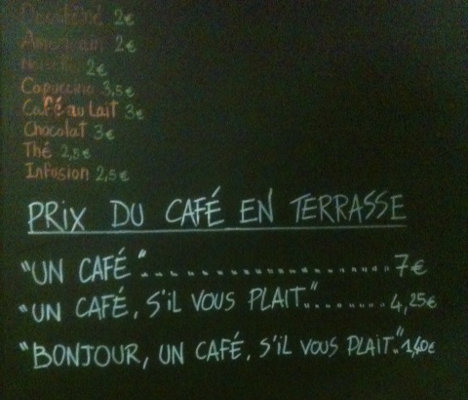 Décaféiné 2€
Américain 2€
Noisette 2€
Capuccino 3,5€
Café au Lait 3€
Chocolat 3€
Thé 2,5€
Infusion 2,5€
PRIX DU CAFÉ EN TERRASSE
"UN CAFÉ"........................7€
"UN CAFÉ, S'IL VOUS PLAIT"..........4,25€
"BONJOUR, UN CAFÉ, S'IL VOUS PLAIT".. 1,40€